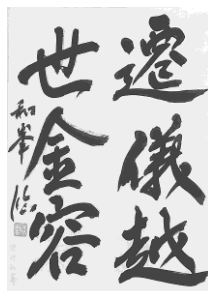 遷儀越
世金容
和峯臨